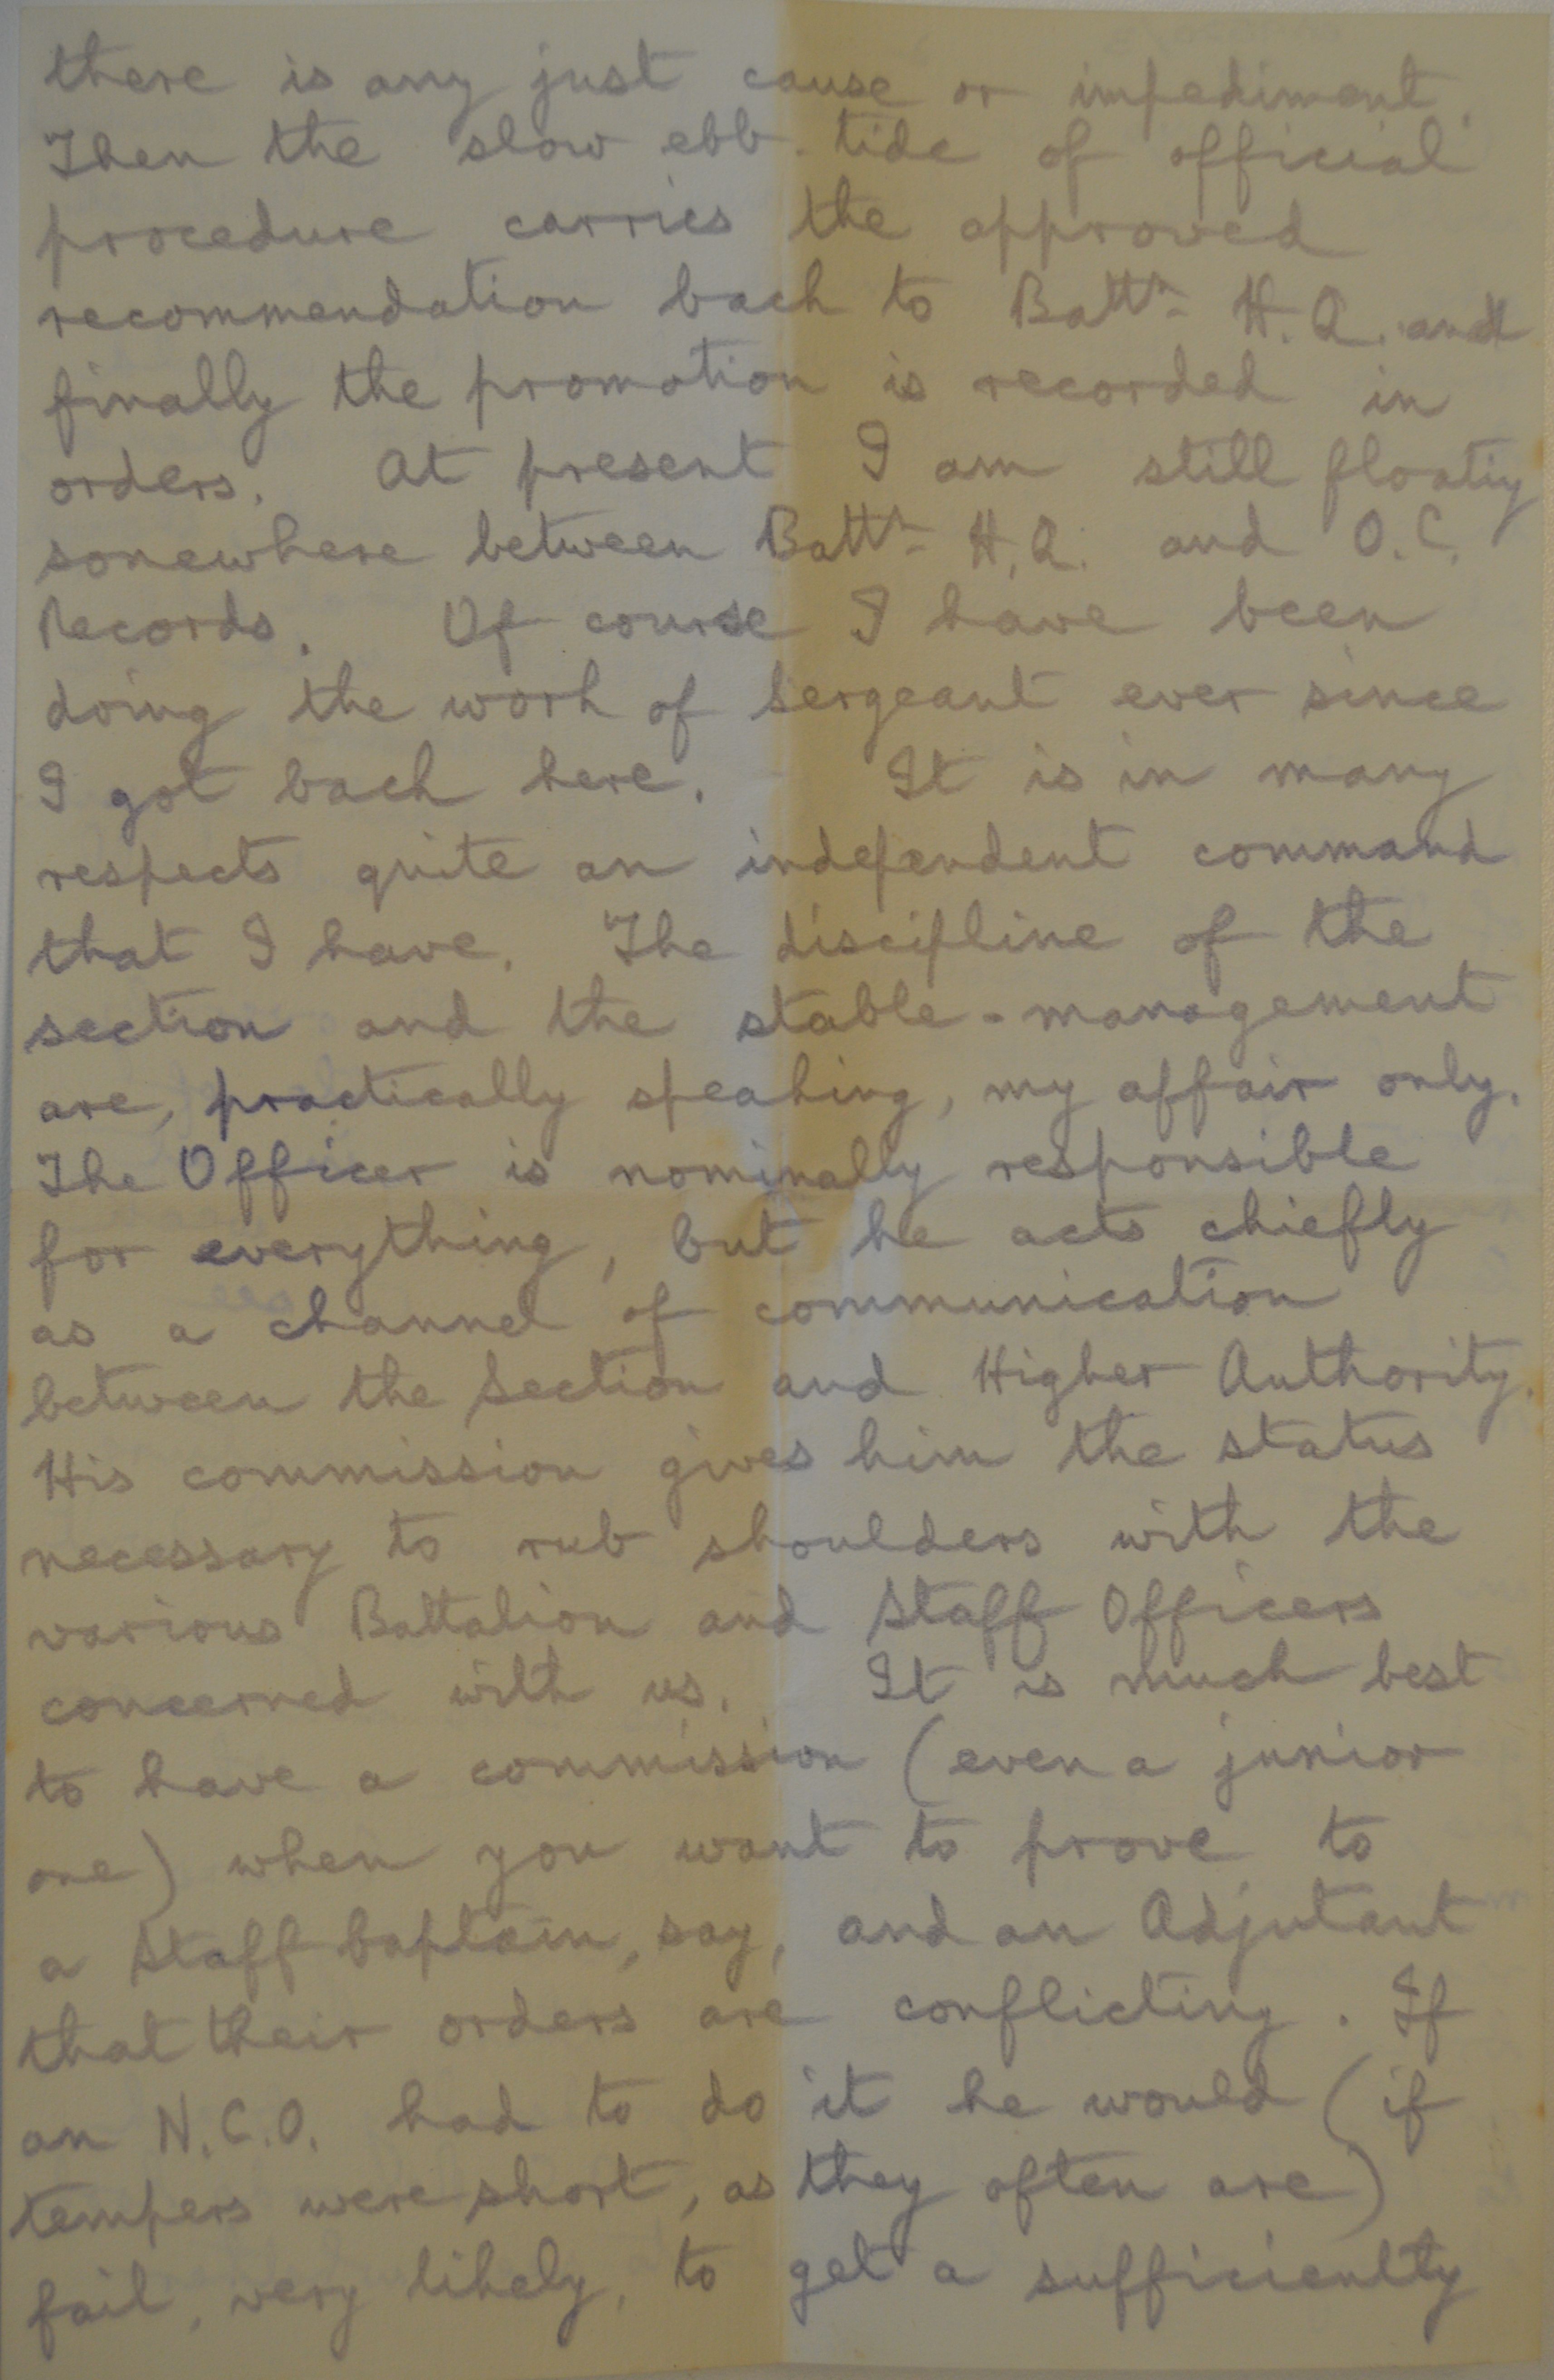 there is any just cause or impediment.
Then the slow ebb-tide of official
procedure carries the approved
recommendation back to Battn. H.Q. and
finally the promotion is recorded in
orders. At present I am still floatig
somewhere between Battn. H.Q. and O.C.
Records. Of course I have been
doing the work of Sergeant ever since
I got back here. It is in many
respects quite an independent command
that I have. The discipline of the
section and the stable-management
are, practically speaking, my affair only.
The Officer is nominally responsible
for everything, but he acts chiefly
as a channel of communication
between the Section and Higher Authority.
His commission gives him the status
necessary to rub shoulders with the
various Battalion and Staff Officers
concerned with us. It is much best
to have a commission (even a junior
one) when you want to prove to
a Staff Captain, say, and an Adjutant
that their orders are conflicting. If
an N.C.O. had to do it he would (if
tempers were short, as they often are)
fail, very likely, to get a sufficiently